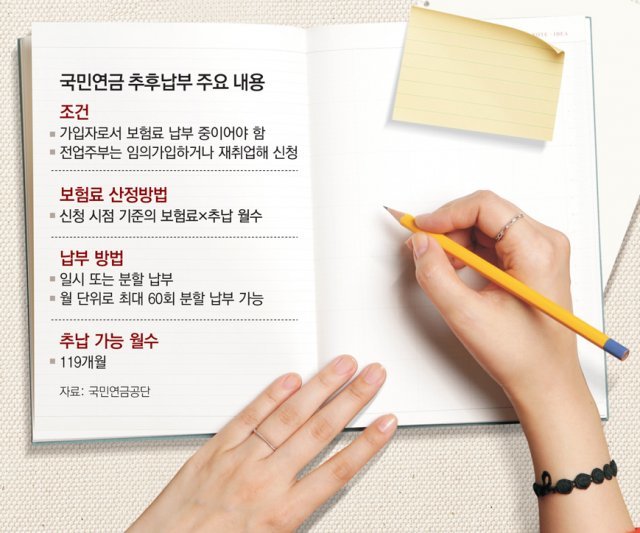 국민연금 추후납부 주요 내용
조건
가입자로서 보험료 납부 중이어야 함
전업주부는 임의가입하거나 재취업해 신청
보험료 산정방법
신청 시점 기준의 보험료×추납 월수
납부 방법
일시 또는 분할 납부
월 단위로 최대 60회 분할 납부 가능
추납 가능 월수
119개월
자료: 국민연금공단